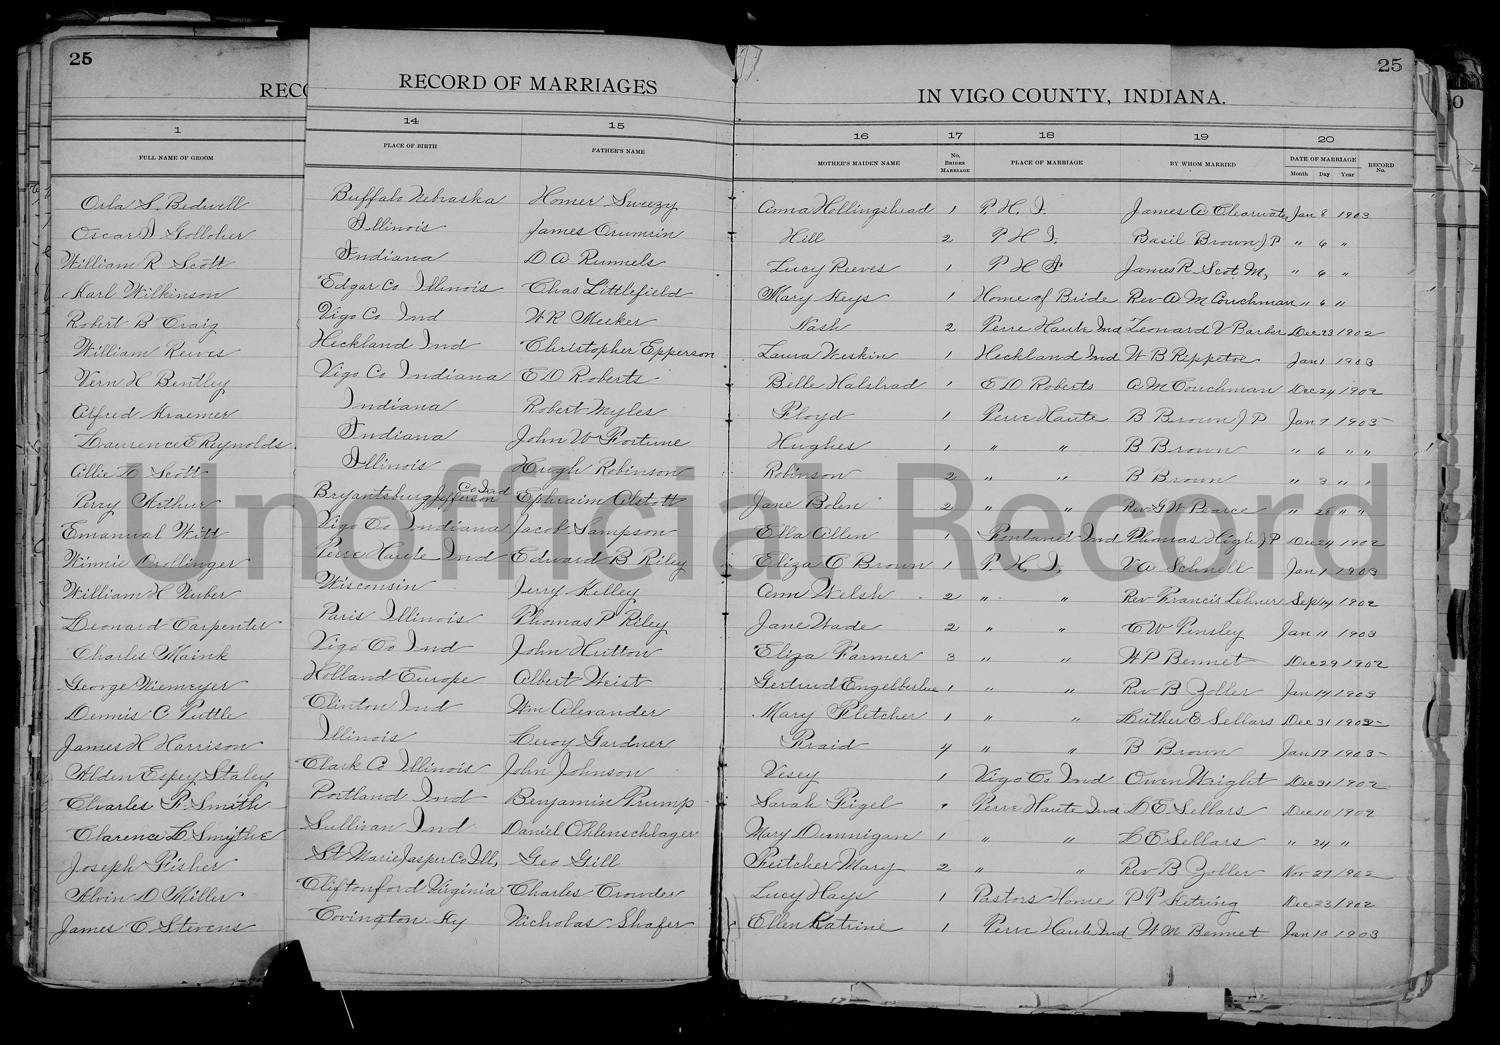 25 25
RECO RECORD OF MARRIAGES IN VIGO COUNTY, INDIANA.
1 14 15 16 17 18 19 20
FULL NAME OF GROOM PLACE OF BIRTH FATHER'S NAME MOTHER'S MAIDEN NAME No. BRIDES MARRIAGE PLACE OF MARRIAGE BY WHOM MARRIED DATE OF MARRIAGE Month Day Year RECORD No.
Orla S. Bedwell Buffalo Nebraska Homer Swezy Anna Hollingshead 1 T. H. I. James A Clearwater Jan 8 1903
Oscar Golloher Illinois James Crumrin Hill 2 T H I. Basil Brown J P " 6 "
William R Scott Indiana D A Runnels Lucy Reeves 1 T H I James R Scot M, " 6 "
Karl Wilkinson Edgar Co Illinois Chas Littlefield Mary Keys 1 Home of Bride Rev A M Couchman " 6 "
Robert B Craig Vigo Co Ind W R Meeker Nash 2 Terre Haute Ind Leonard V Barber Dec 23 1902
William Reeves Heckland Ind Christopher Epperson Laura Weskin 1 Heckland Ind W B Rippetoe Jan 1 1903
Vern H Bentley Vigo Co Indiana E D Roberts Belle Halstead 1 E D Roberts A M Couchman Dec 24 1902
Alfred Kraemer Indiana Robert Myles Floyd 1 Terre Haute B Brown J P Jan 7 1903
Laurence E Reynolds Indiana John W Fortune Hughes 1 " " B Brown " 6 " "
Allie L Scott Illinois Hugh Robinson Robinson 2 " " B Brown " 3 " "
Perry Arthur Bryantsburg Jefferson Co Ind Ephraim Alstott Jane Bolen 2 " " Rev G W Pearce " 28 " "
Emanual Witt Vigo Co Indiana Jacob Sampson Ella Allen 1 Fontanet Ind Thomas High J P Dec 24 1902
Winnie Drollinger Terre Haute Ind Edward B Riley Eliza C Brown 1 T. H. I. V A Schnell Jan 1 1903
William H Huber Wisconsin Jerry Kelley Ann Welsh 2 " " Rev Francis Lehner Sep 14 1902
Leonard Carpenter Paris Illinois Thomas P Riley Jane Wade 2 " " C W Tinsley Jan 11 1903
Charles Maink Vigo Co Ind John Hutton Eliza Farmer 3 " " W P Bennet Dec 29 1902
George Niemeyer Holland Europe Albert Weist Gertrud 1 " " Rev B Zoller Jan 14 1903
Dennis C Tuttle Clinton Ind Wm Alexander Mary Fletcher 1 " " Luther E Sellars Dec 31 1902
James H Harrison Illinois Leroy Gardner Fraid 4 " " B Brown Jan 17 1903
Alden Espey Staley Clark Co Illinois John Johnson Vesey 1 Vigo Co Ind Owen Wright Dec 31 1902
Charles F. Smith Portland Ind Benjamin Trump Sarah Figel " Terre Haute Ind L E Sellars Dec 10 1902
Clarence L Smythe Sullivan Ind Daniel Ohlenschlager Mary Dunnigan 1 " " L E Sellars " 24 "
Joseph Fisher St Marie Jasper Co Ill, Geo Gill Fletcher Mary 2 " " Rev B Zoller Nov 27 1902
Alvin D Miller Cliftonford Virginia Charles Crowder Lucy Hays 1 Pastors Home P P Ketring Dec 23 1902
James C Stevens Covington Ky Nicholas Shafer Ellen Katrine 1 Terre Haute Ind W M Bennet Jan 10 1903
Unofficial Record